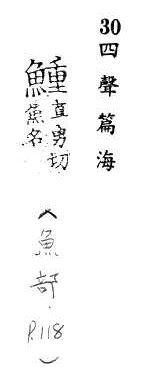 30四聲篇海
直勇切
魚名
(魚部.P.118)